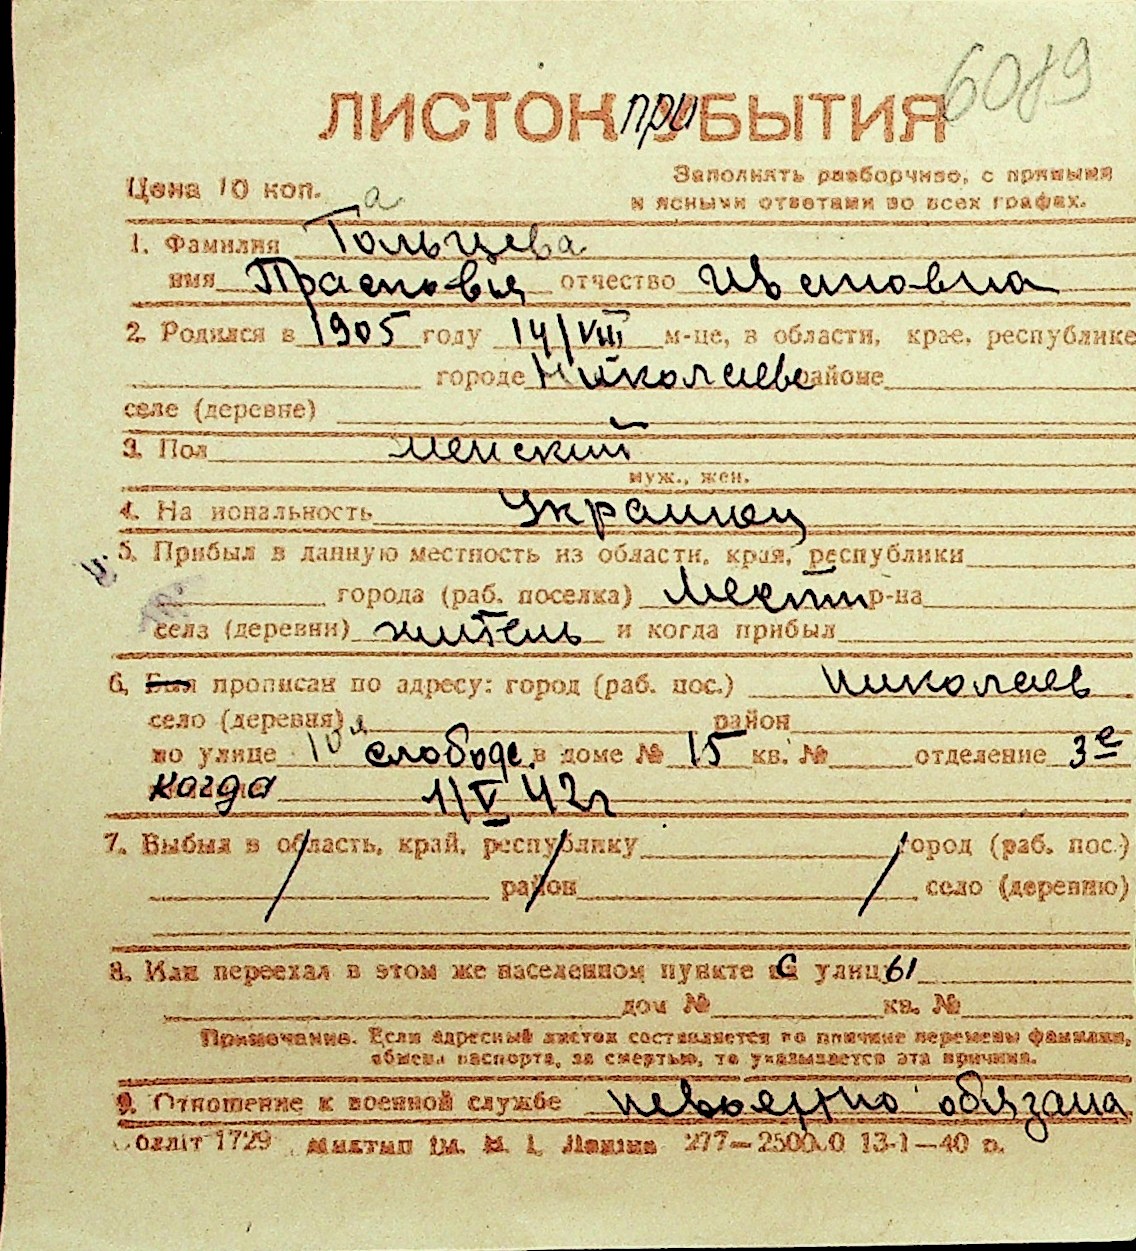 6089
ЛИСТОК ПРИБЫТИЯ
Цена 10 коп.
Заполнять разборчиво, с прямыми
и ясными ответами во всех графах.
а
1. Фамилия Гольцева
имя Прасковья отчество Ивановна
2. Родился в 1905 году 14/VIII м-це, в области, крае, республике
городе Николаеве районе
селе (деревне)
3. Пол женский
муж., жен.
4. На иональность Украинец
5. Прибыл в данную местность из области, края, республики
города (раб. поселка) местн р-на
села (деревни) житель и когда прибыл
6. Был прописан по адресу: город (раб. пос.) Николаев
село (деревня) район
по улице 10я слободе в доме № 15 кв. № отделение 3е
когда 1/V 42г
7. Выбыл в область, край, республику город (раб. пос.)
район село (деревню)
8. Или переехал в этом же населенном пункте с улицы
дом № кв. №
Примечание. Если адресный листок составляется по причине перемены фамилии,
обмена паспорта, за смертью, то указывается эта причина.
9. Отношение к военной службе невоенно обязана
Обліт 1729 Миктип ім. В. І. Леніна 277—25000 13-1—40 р.